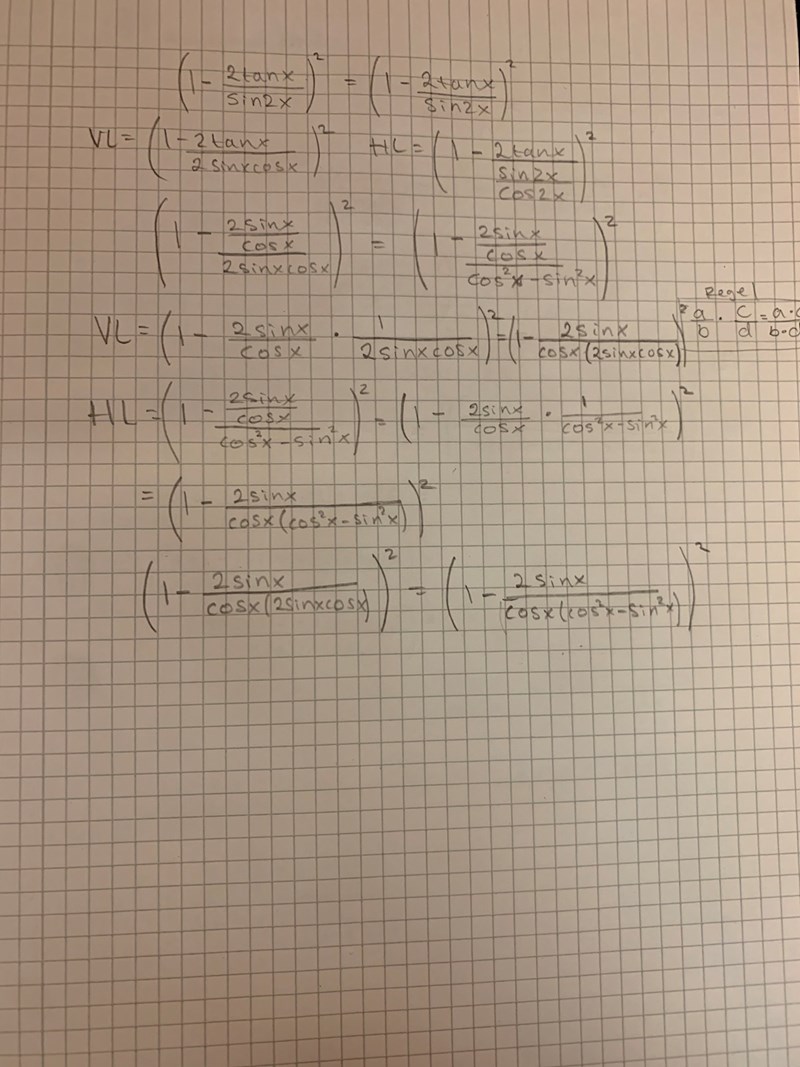 (1 - 2tanx/sin2x)² = (1 - 2tanx/sin2x)²
VL = (1 - 2tanx/2sinxcosx)² HL = (1 - 2tanx/sin2x/cos2x)²
(1 - 2sinx/cosx/2sinxcosx)² = (1 - 2sinx/cosx/cos²x - sin²x)²
Regel
VL = (1 - 2sinx/cosx · 1/2sinxcosx)² = (1 - 2sinx/cosx(2sinxcosx))² a/b · c/d = a·c/b·d
HL = (1 - 2sinx/cosx/cos²x - sin²x)² = (1 - 2sinx/cosx · 1/cos²x - sin²x)²
= (1 - 2sinx/cosx(cos²x - sin²x))²
(1 - 2sinx/cosx(2sinxcosx))² = (1 - 2sinx/cosx(cos²x - sin²x))²